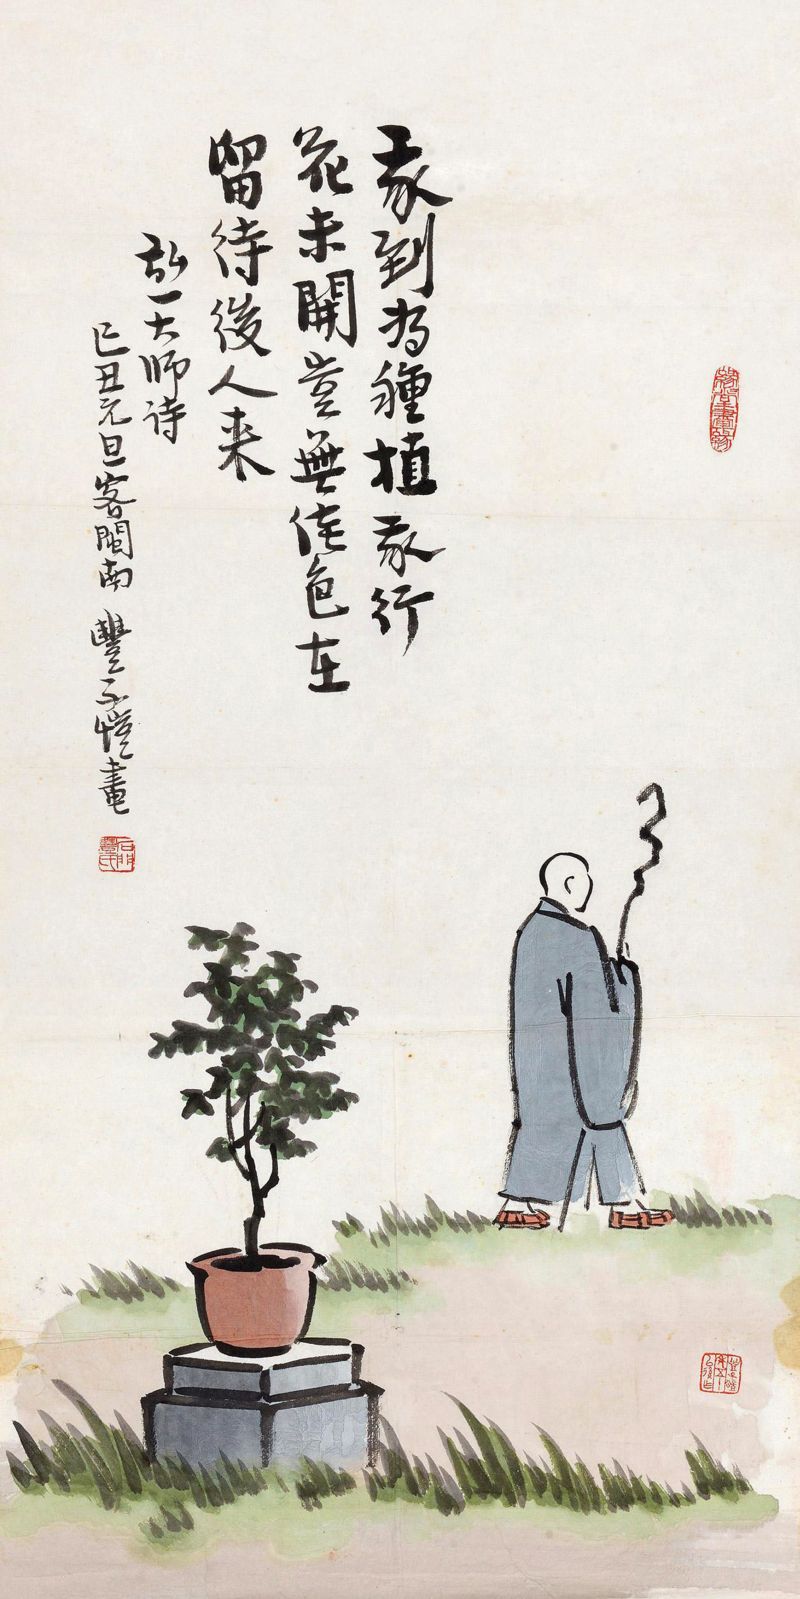 我到为種植我行
花未開豈無佳色在
留待後人来
弘一大师诗
己丑元旦客閩南 豐子愷畫